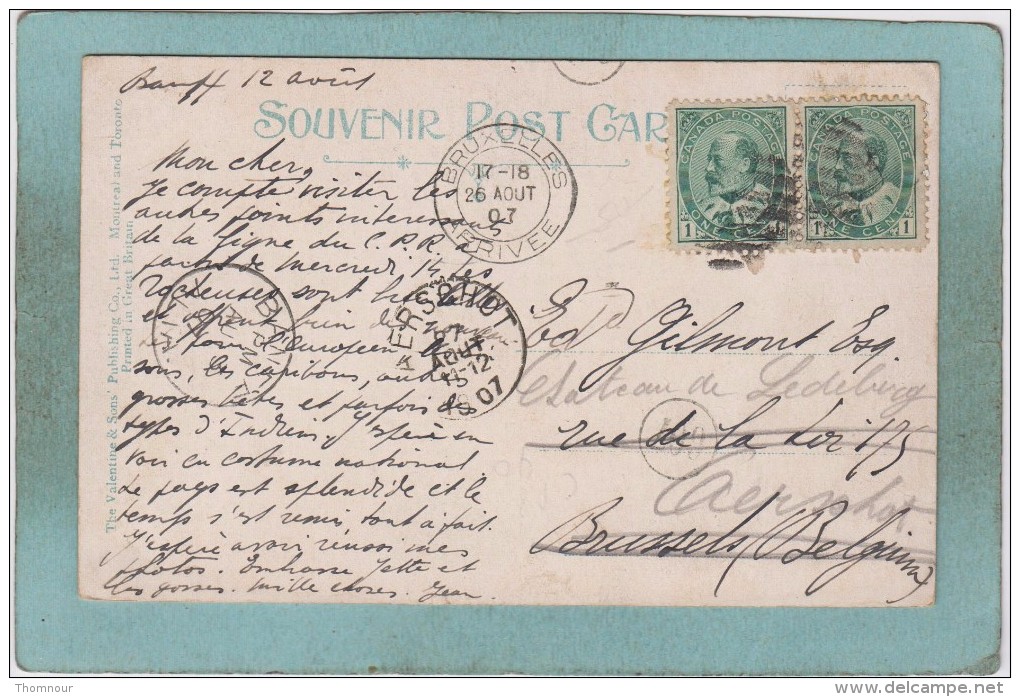 Banff 12 août
SOUVENIR POST CAR
The Valentine & Sons' Publishing Co., Ltd. Montreal and Toronto
Printed in Great Britain
Mon cher,
Je compte visiter les
autres points intéressants
de la ligne du C.P.R. à
partir de mercredi, 14. Les
Rocheuses sont
et
de l'Européen
sons, les caribous, autres
grosses bêtes et parfois des
types d'Indiens. J'espère en
voir en costume national
Le pays est splendide et le
temps s'est remis tout à fait.
J'espère avoir réussi mes
photos. Embrasse Jette et
les gosses. Mille choses. Jean.
BRUXELLES
17-18
26 AOUT
07
ARRIVEE
AERSCHOT
27
AOUT
11-12
07
CANADA POSTAGE
1 ONE CENT 1
CANADA POSTAGE
1 ONE CENT 1
Ed. Gilmont Esq.
Chateau de Ledeberg
rue de la Loi 175
Aerschot
Brussels (Belgium)
Thomnour
www.delcampe.net